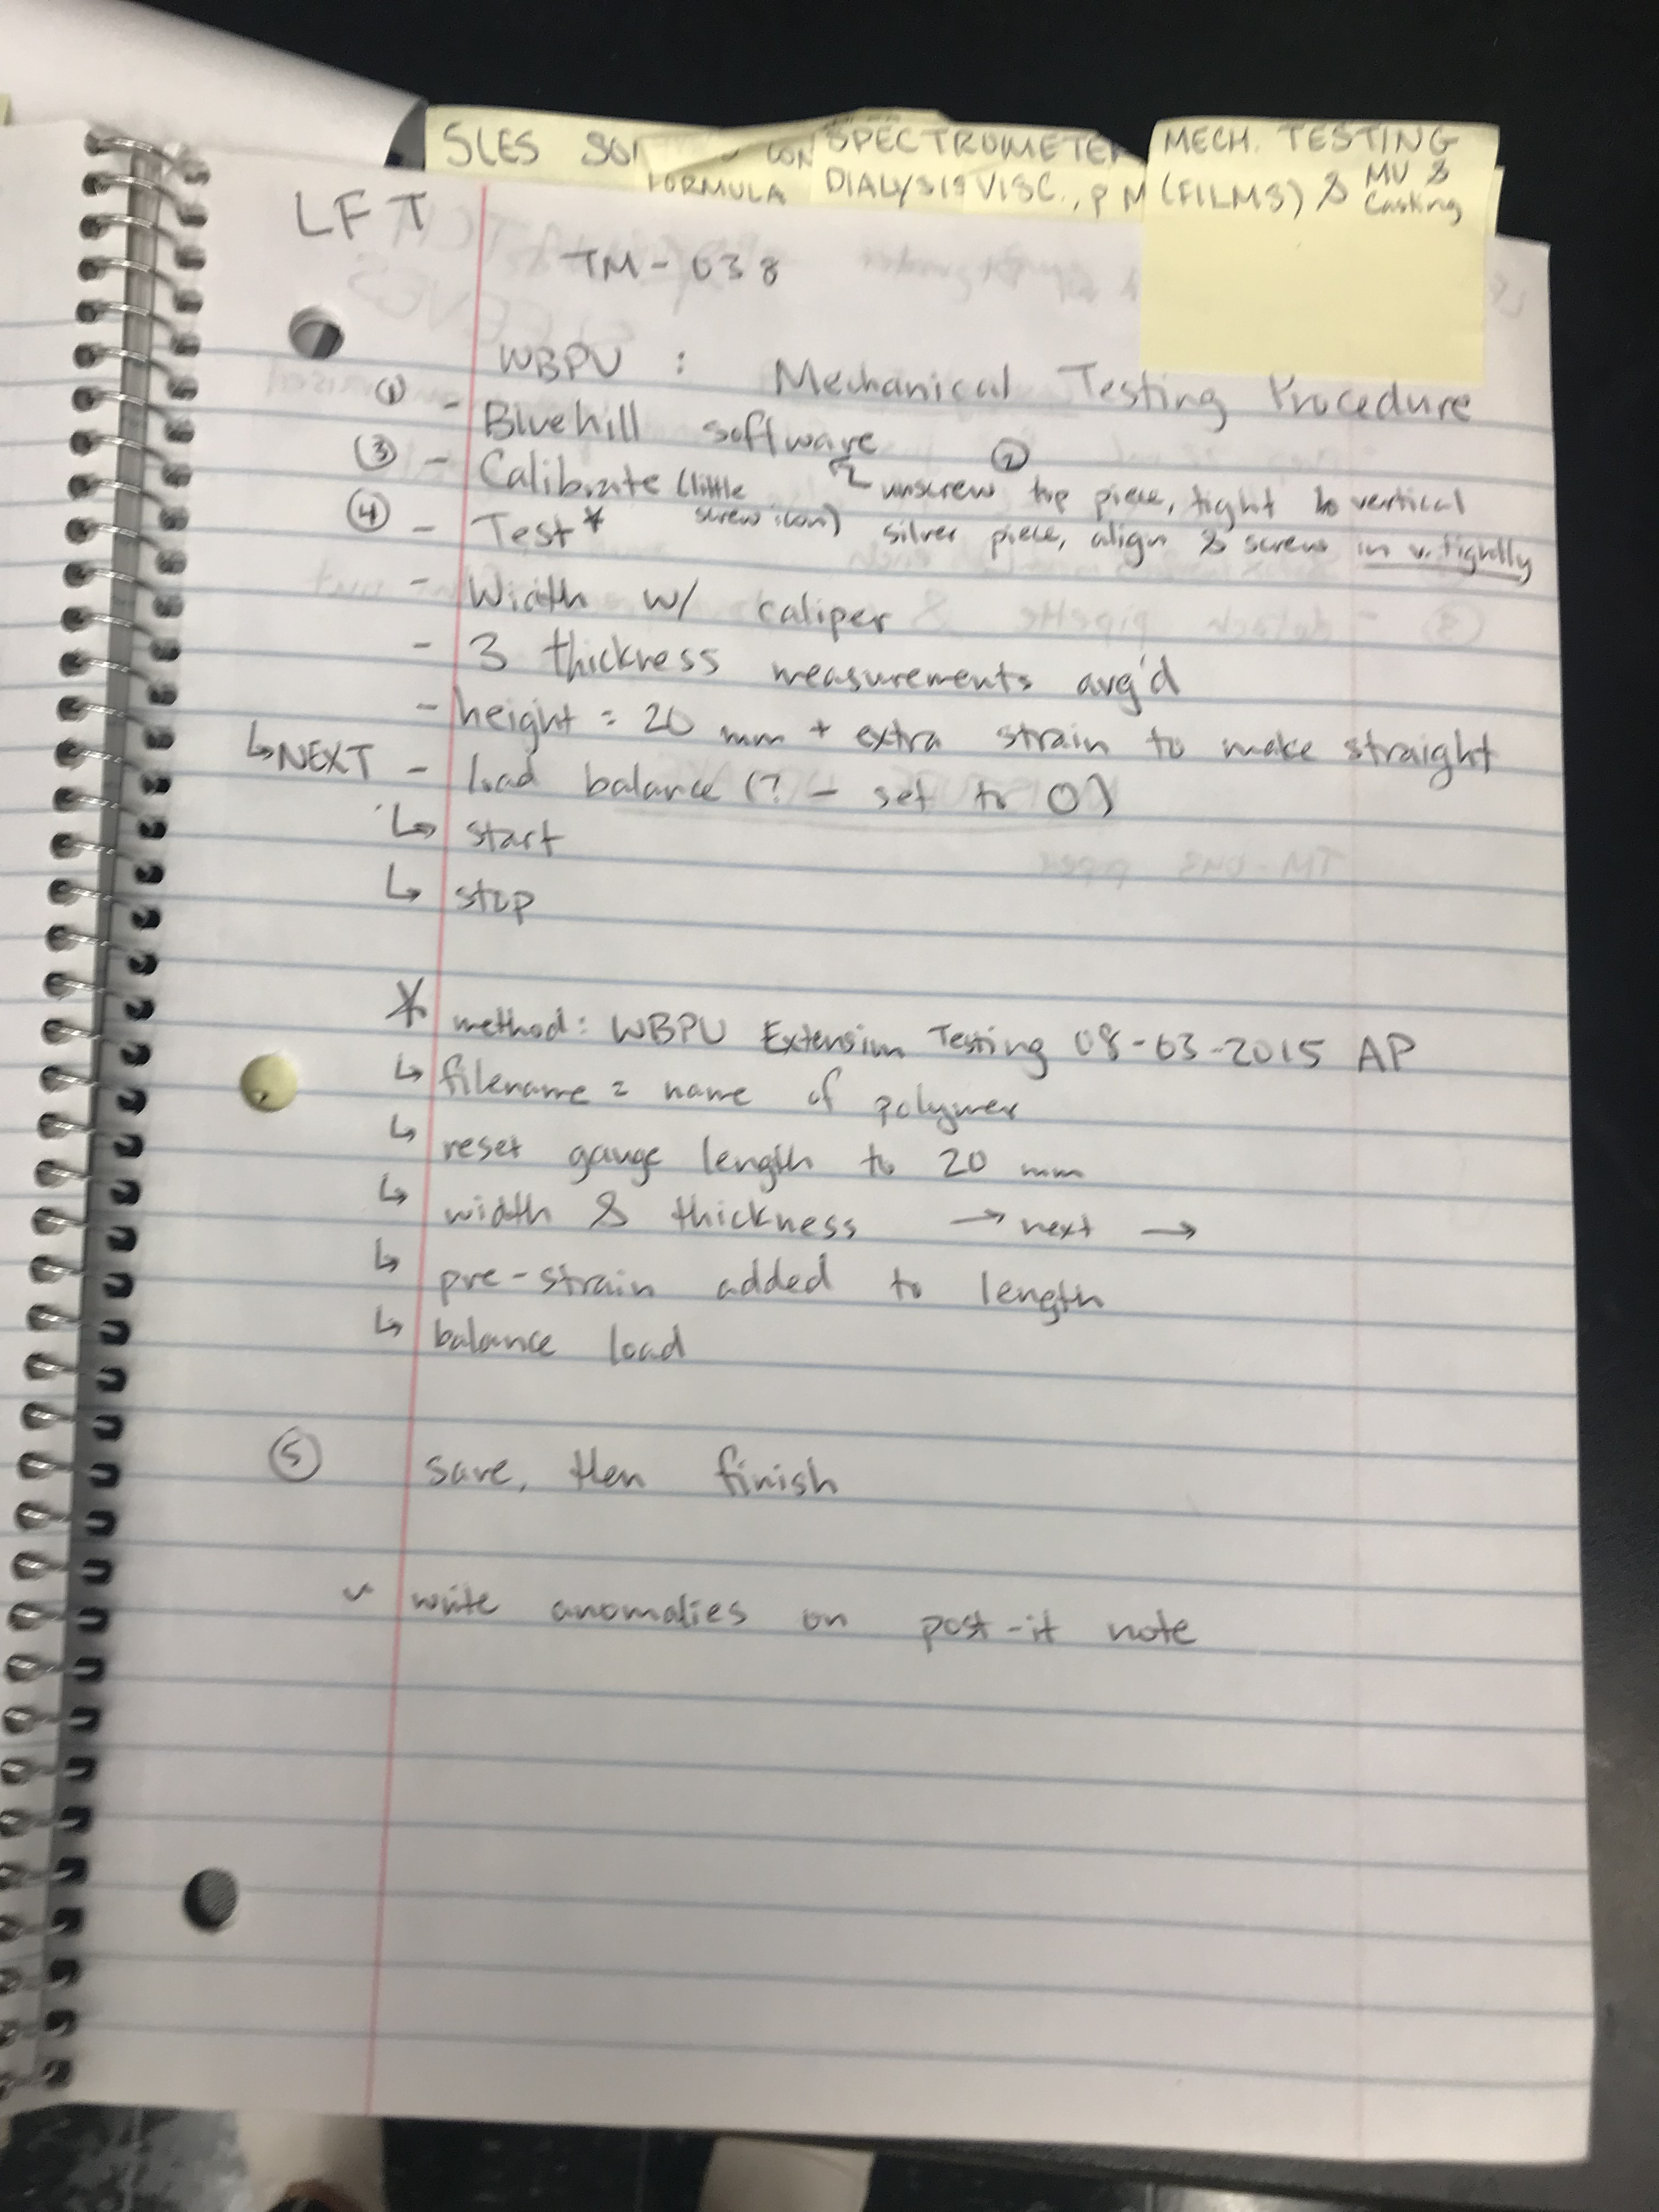 SLES
CON
FORMULA
SPECTROMETER
DIALYSIS VISC., P M
MECH. TESTING
(FILMS) & MV &
Casting
LFT
TM-038
WBPU : Mechanical Testing Procedure
① - Bluehill software
② unscrew top piece, tight to vertical
silver piece, align & screw in v. tightly
③ - Calibrate (little
screw icon)
④ - Test*
- Width w/ caliper
- 3 thickness measurements avg'd
- height = 20 mm + extra strain to make straight
↳ NEXT - load balance (? - set to 0)
↳ start
↳ stop
* method: WBPU Extension Testing 08-03-2015 AP
↳ filename = name of polymer
↳ reset gauge length to 20 mm
↳ width & thickness → next →
↳ pre-strain added to length
↳ balance load
⑤ save, then finish
write anomalies on post-it note